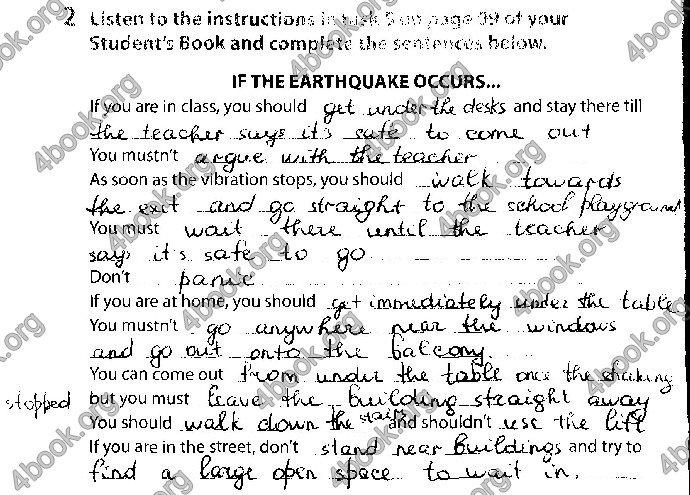 2 Listen to the instructions in task 5 on page 39 of your
Student's Book and complete the sentences below.
IF THE EARTHQUAKE OCCURS...
If you are in class, you should get under the desks and stay there till
the teacher says it's safe to come out
You mustn't argue with the teacher
As soon as the vibration stops, you should walk towards
the exit and go straight to the school playground
You must wait there until the teacher
says it's safe to go
Don't panic
If you are at home, you should get immediately under the table
You mustn't go anywhere near the windows
and go out onto the balcony.
You can come out from under the table once the shaking
stopped but you must leave the building straight away
You should walk down the stairs and shouldn't use the lift
If you are in the street, don't stand near buildings and try to
find a large open space to wait in.
4book.org